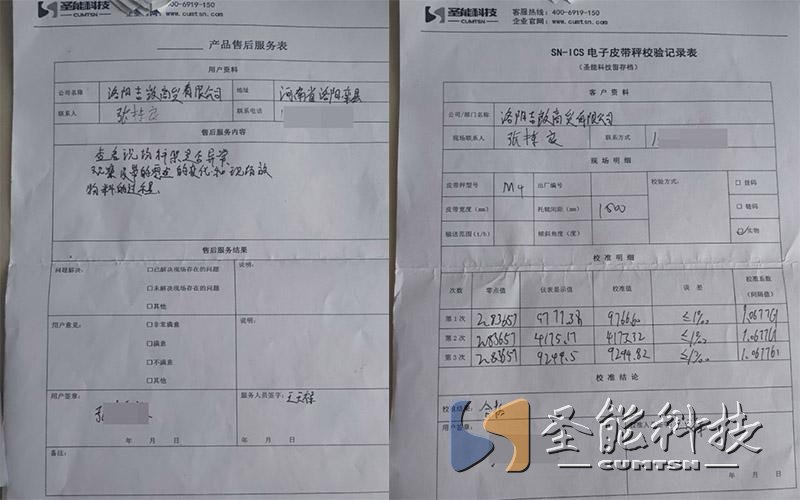 圣能科技
CUMTSN
400-6919-150
企业官网:www.cumtsn.com
产品售后服务表
用户资料
公司名称
洛阳吉致商贸有限公司
地址
河南省洛阳栾县
联系人
联系电话
售后服务内容
查看现场秤架是否异常
观察皮带的零点的变化和现场放
物料的过程
售后服务结果
问题解决:
□已解决现场存在的问题
□未解决现场存在的问题
□其他
说明:
用户意见:
□非常满意
□满意
□不满意
□其他
说明:
用户签章:
服务人员签字:
年 月 日
年 月 日
备注:
圣能科技
CUMTSN
客服热线:400-6919-150
企业官网:www.cumtsn.com
SN-ICS 电子皮带秤校验记录表
(圣能科技留存档)
客户资料
公司/部门名称
洛阳吉致商贸有限公司
现场联系人
联系方式
现场明细
皮带秤型号
M4
出厂编号
校验方式:
□ 挂码
皮带宽度(mm)
托辊间距(mm)
1500
□ 链码
输送范围(t/h)
倾斜角度(度)
实物
校准明细
次数
零点值
仪表显示值
校准值
误 差
校准系数
(间隔值)
第1次
2.83657
9777.38
9766.60
≤1‰
1.067761
第2次
2.83657
4175.17
4173.32
≤1‰
1.067761
第3次
2.83657
9249.5
9244.82
≤1‰
1.067761
校准结论
校准结果:
合格
用户签章:
年 月 日
圣能科技
CUMTSN